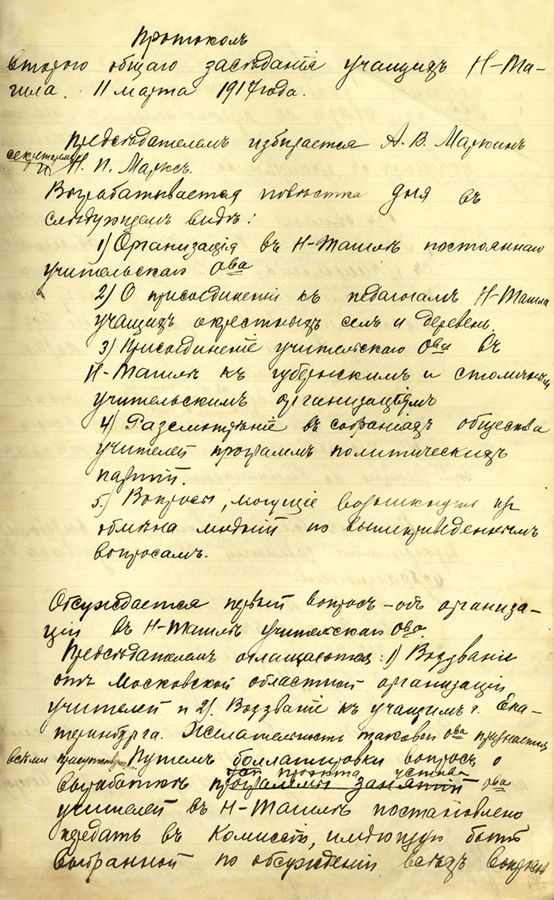 Протоколъ
второго общаго засѣданія учащихъ Н-Та-
гила. 11 марта 1917 года.
Предсѣдателемъ избирается А. В. Маркинъ
секретаремъ
Н. П. Марксъ.
Вырабатывается повѣстка дня въ
слѣдующемъ видѣ:
1) Организація въ Н-Тагилѣ постояннаго
учительскаго О-ва
2) О присоединеніи къ педагогамъ Н-Тагила
учащихъ окрестныхъ селъ и деревень
3) Присоединеніе учительскаго О-ва въ
Н-Тагилѣ къ губернскимъ и столичнымъ
учительскимъ организаціямъ
4) Разсмотрѣніе въ собраніяхъ общества
учителей программъ политическихъ
партій.
5) Вопросы, могущіе возникнуть изъ
обмѣна мнѣній по вышеприведеннымъ
вопросамъ.
Обсуждается первый вопросъ - объ организа-
ціи въ Н-Тагилѣ учительскаго О-ва.
Предсѣдателемъ оглашаются: 1) Воззваніе
отъ Московской областной организаціи
учителей и 2) Воззваніе къ учащимъ г. Ека-
теринбурга. Желательность таковой О-ва признается
всѣми Путемъ баллотировки вопросъ о
проэкта устава
выработкѣ программы занятій О-ва
учителей въ Н-Тагилѣ постановлено
передать въ Комиссію, имѣющую быть
выбранной по обсужденіи всѣхъ